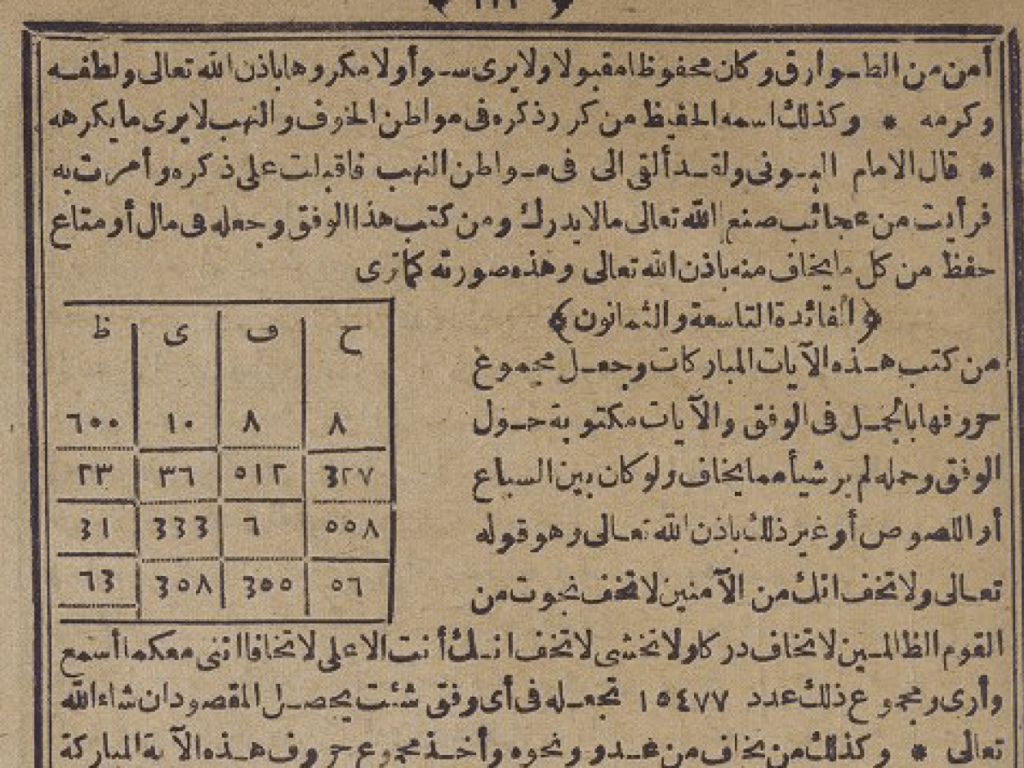 أمن من الطـوارق وكان محفوظا مقبولا ولا يرى سـوأ ولا مكروها باذن الله تعالى ولطفـه
وكرمه * وكذلك اسمه الحفيظ من كرر ذكره فى مواطن الخوف والنهب لا يرى ما يكرهه
* قال الامام البـونى ولقـد ألقى الى فى مـواطن النهب فاقبلت على ذكره وأمرت به
فرأيت من عجائب صنع الله تعالى مالا يدرك ومن كتب هذا الوفق وجعله فى مال أو متاع
حفظ من كل ما يخاف منه باذن الله تعالى وهذه صورته كما ترى
﴿الفائدة التاسعة والثمانون﴾
ح ف ى ظ
٨ ٨ ١٠ ٦٠٠
3٢٧ ٥١٢ ٣٦ ٢٣
٥٥٨ ٦ 333 3١
٥٦ 3٥٥ 3٥٨ ٦3
من كتب هـذه الآيات المباركات وجعـل مجموع
حروفها بالجمـل فى الوفق والآيات مكتوبة حـول
الوفق وحمله لم ير شيأ مما يخاف ولو كان بين السباع
أو اللصوص أو غير ذلك باذن الله تعـالى وهو قوله
تعـالى ولا تخف انك من الآمنين لا تخف نجوت من
القوم الظالمـين لا تخاف دركا ولا تخشى لا تخف انـك أنت الاعلى لا تخافا اننى معكما أسمع
وأرى ومجموع ذلك عدد ١٥٤٧٧ تجعـله فى أى وفق شئت يحصـل المقصود ان شاء الله
تعالى * وكذلك من يخاف من عـدو ونحوه وأخـذ مجموع حروف هـذه الآية المباركة